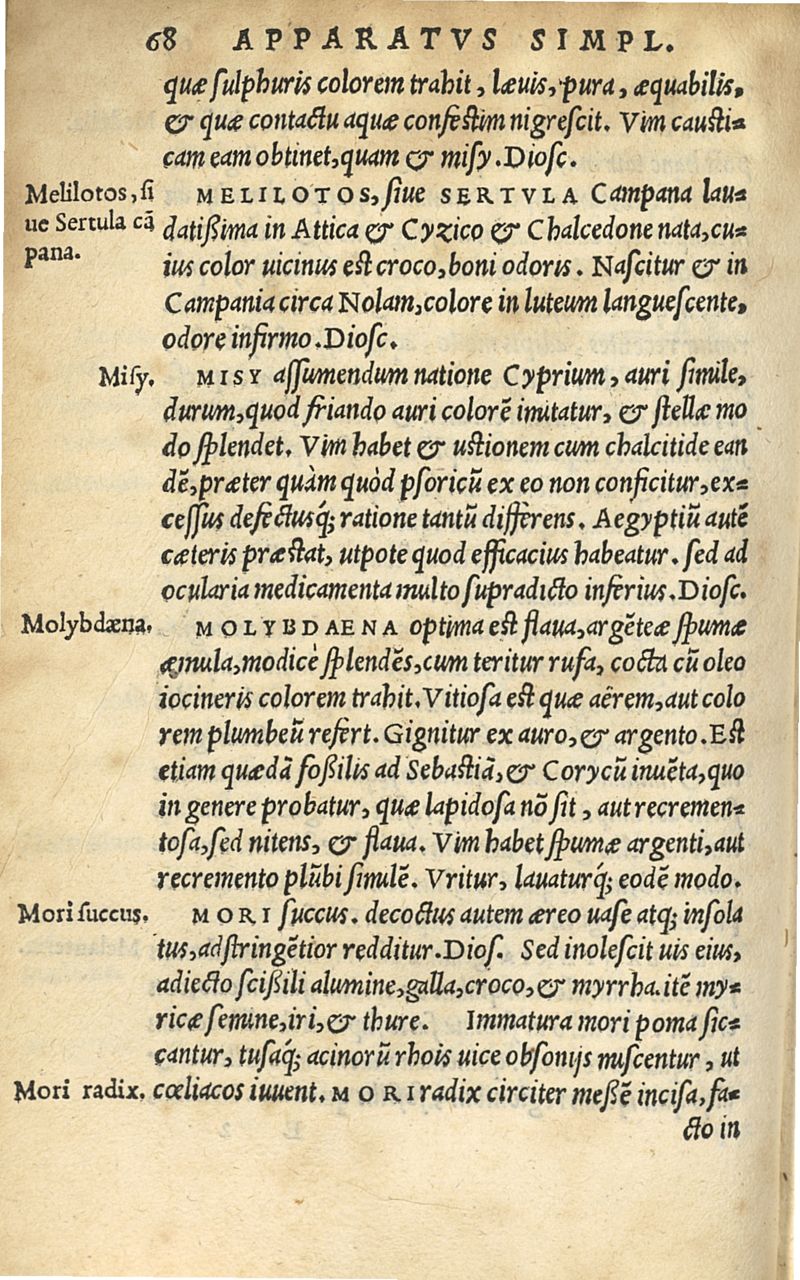 68 APPARATVS SIMPL.
quæ sulphuris colorem trahit, læuis, pura, æquabilis,
& quæ contactu aquæ confestim nigrescit. Vim causti=
cam eam obtinet, quam & misy. Diosc.
Melilotos, si
ue Sertula cã
pana.
MELILOTOS, siue SERTVLA Campana lau=
datißima in Attica & Cyzico & Chalcedone nata, cu=
ius color uicinus est croco, boni odoris. Nascitur & in
Campania circa Nolam, colore in luteum languescente,
odore infirmo. Diosc.
Misy.
MISY assumendum natione Cyprium, auri simile,
durum, quod friando auri colorẽ imitatur, & stellæ mo
do splendet. Vim habet & ustionem cum chalcitide ean
dẽ, præter quàm quòd psoricũ ex eo non conficitur, ex=
cessus defectusq́; ratione tantũ differens. Aegyptiũ autẽ
cæteris præstat, utpote quod efficacius habeatur. sed ad
ocularia medicamenta multo supradicto inferius. Diosc.
Molybdæna.
MOLYBDAENA optima est flaua, argẽteæ spumæ
æmula, modicè splendẽs, cum teritur rufa, cocta cũ oleo
iocineris colorem trahit. Vitiosa est quæ aërem, aut colo
rem plumbeũ refert. Gignitur ex auro, & argento. Est
etiam quædã foßilis ad Sebastiã, & Corycũ inuẽta, quo
in genere probatur, quæ lapidosa nõ sit, aut recremen=
tosa, sed nitens, & flaua. Vim habet spumæ argenti, aut
recremento plũbi similẽ. Vritur, lauaturq́; eodẽ modo.
Mori succus.
MORI succus. decoctus autem æreo uase atq; insola
tus, adstringẽtior redditur. Dios. Sed inolescit uis eius,
adiecto scißili alumine, galla, croco, & myrrha. itẽ my=
ricæ semine, iri, & thure. Immatura mori poma sic=
cantur, tusaq́; acinorũ rhois uice obsonijs miscentur, ut
Mori radix.
cœliacos iuuent. MORI radix circiter meßẽ incisa, fa=
cto in